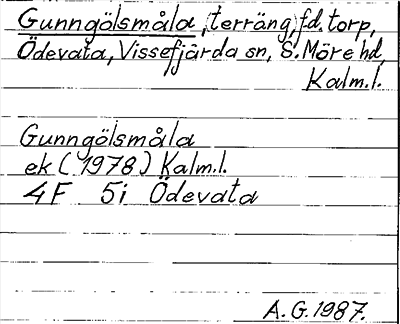 Gunngölsmåla, terräng, fd. torp,
Ödevata, Vissefjärda sn, S. Möre hd,
Kalm.l.
Gunngölsmåla
ek (1978) Kalm.l.
4F 5i Ödevata
A.G. 1987.